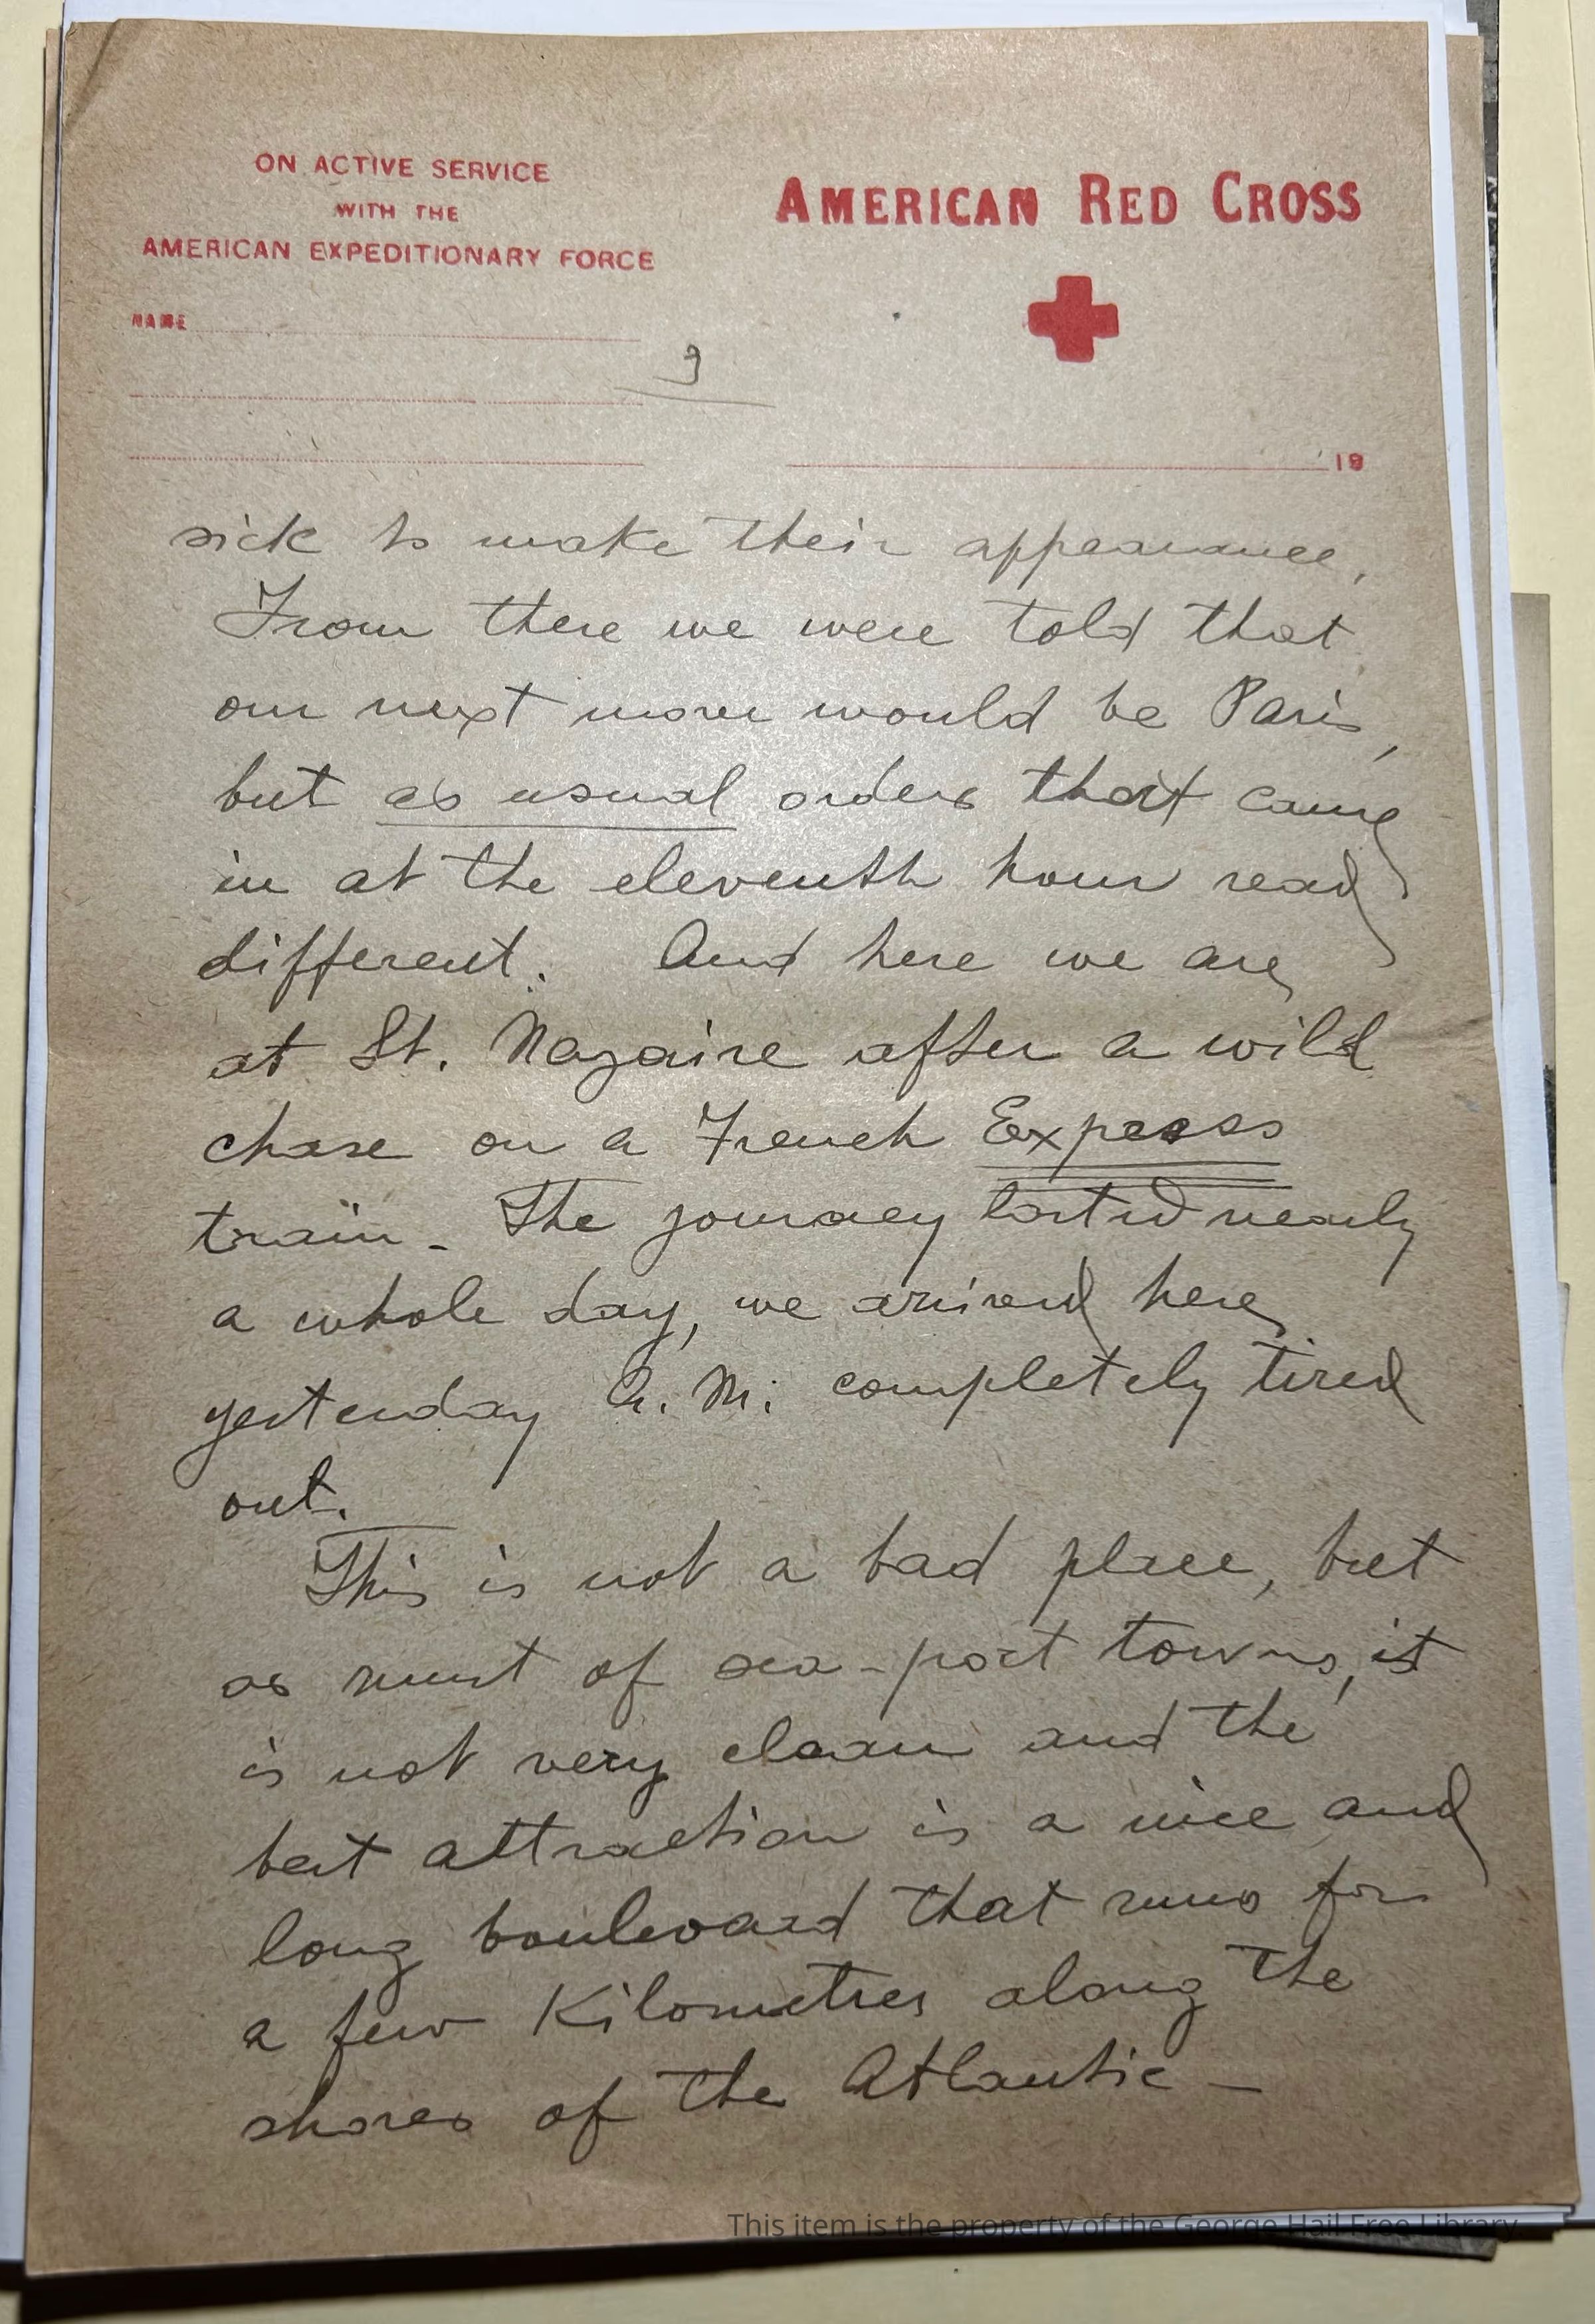 ON ACTIVE SERVICE
WITH THE
AMERICAN EXPEDITIONARY FORCE
AMERICAN RED CROSS
NAME
3
19
sick to make their appearance,
From there we were told that
our next move would be Paris,
but as usual orders that came
in at the eleventh hour read
different. And here we are
at St. Nazaire after a wild
chase on a French Express
train - The journey lasted nearly
a whole day, we arrived here
yesterday A. M. completely tired
out.
This is not a bad place, but
as must of sea-port towns, it
is not very clean and the
best attraction is a nice and
long boulevard that runs for
a few Kilometres along the
shores of the Atlantic -
This item is the property of the George Hail Free Library